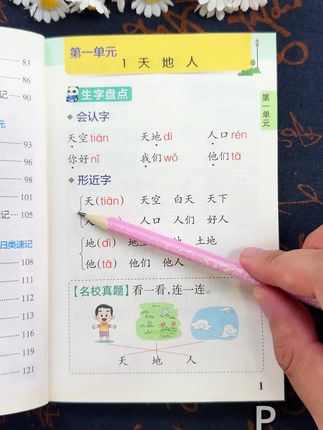 83
90
记
元
105
归类速记
111
119
121
第一单元
1 天 地 人
生字盘点
会认字
天空 tiān 天地 dì 人口 rén
你好 nǐ 我们 wǒ 他们 tā
形近字
天(tiān) 天空 白天 天下
人口 人们 好人
地(dì) 土地
他(tā) 他们 他人
【名校真题】看一看,连一连。
天 地 人
1
第一单元
P